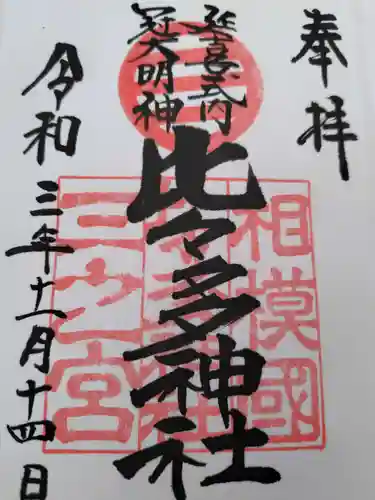 奉拝
延喜式内
冠大明神
比々多神社
令和三年十一月十四日
相模國
三之宮